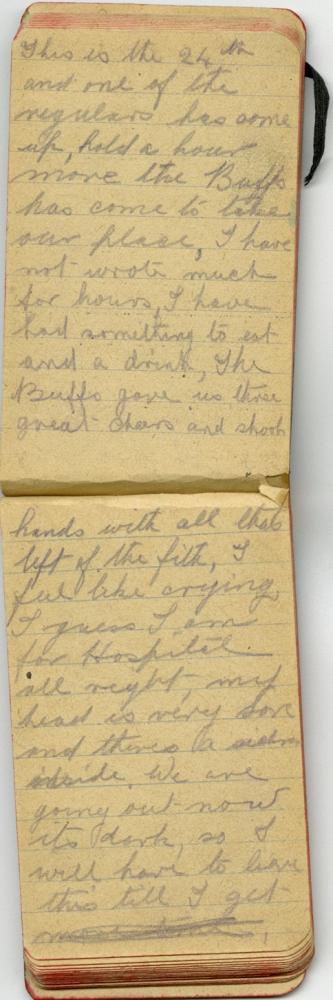 This is the 24th
and one of the
regulars has come
up, hold a hour
more the Buffs
has come to take
our place, I have
not wrote much
for hours, I have
had something to eat
and a drink, The
Buffs gave us three
great cheers and shook
hands with all thats
left of the fith, I
feel like crying,
I guess I am
for Hospital
all right, my
head is very sore
and theres a
inside. We are
going out now
its dark, so I
will have to leave
this till I get